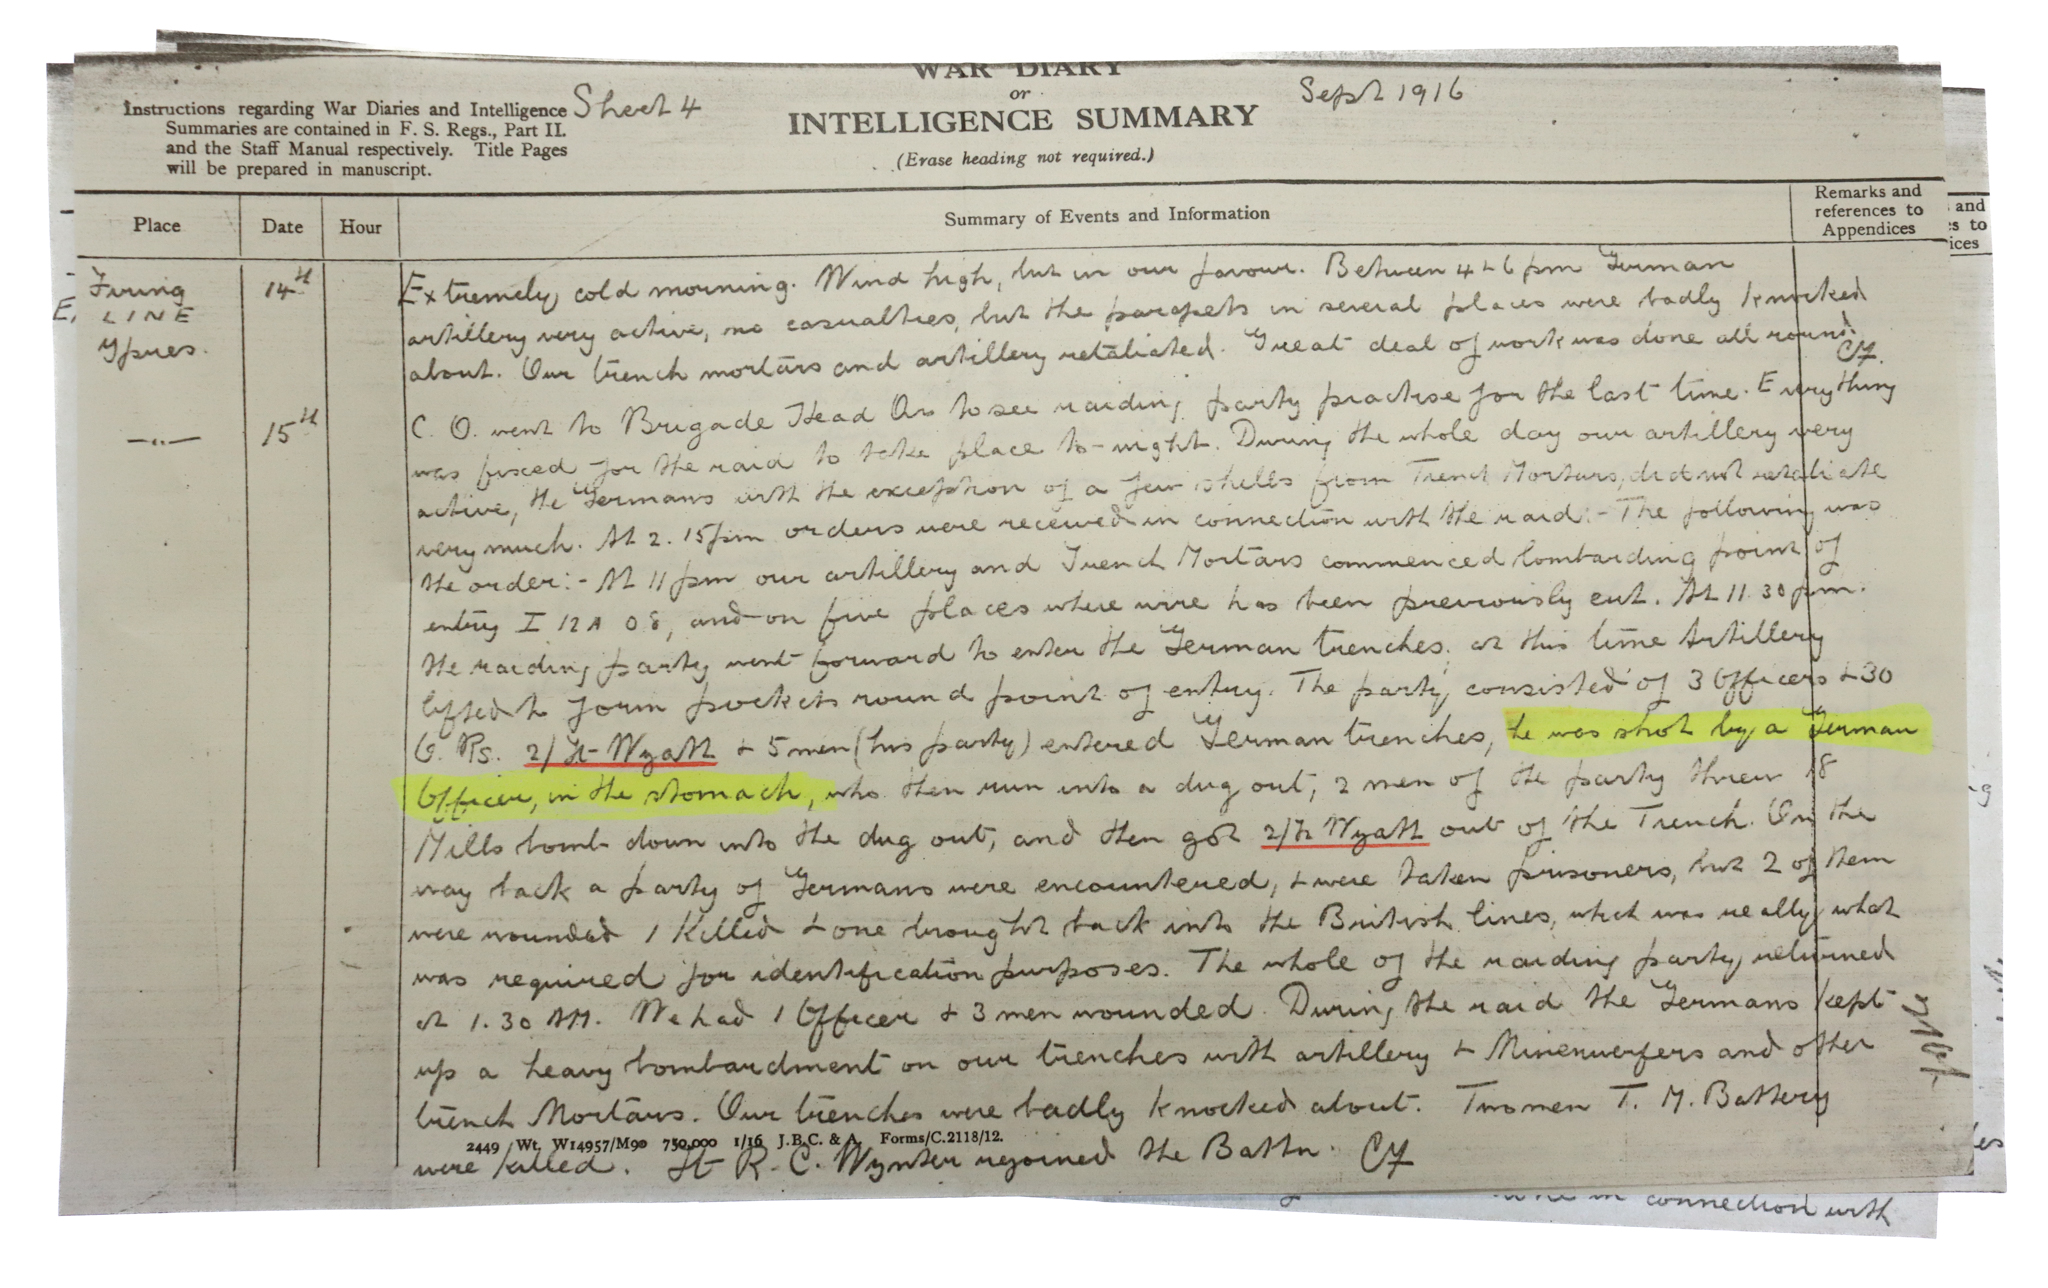 WAR DIARY
or
INTELLIGENCE SUMMARY
(Erase heading not required.)
Instructions regarding War Diaries and Intelligence
Summaries are contained in F. S. Regs., Part II.
and the Staff Manual respectively. Title Pages
will be prepared in manuscript.
Sheet 4
Sept 1916
Place Date Hour Summary of Events and Information Remarks and
references to
Appendices
and
es to
ices
Firing
LINE
Ypres.
14th
Extremely cold morning. Wind high, but in our favour. Between 4 & 6 pm German
artillery very active, no casualties, but the parapets in several places were badly knocked
about. Our trench mortars and artillery retaliated. Great deal of work was done all round.
CF.
—"—
15th
C. O. went to Brigade Head Qrs to see raiding party practise for the last time. Everything
was fixed for the raid to take place to-night. During the whole day our artillery very
active, the Germans with the exception of a few shells from Trench Mortars, did not retaliate
very much. At 2.15pm orders were received in connection with the raid:- The following was
the order:- At 11 pm our artillery and Trench Mortars commenced bombarding point of
entry I 12 A 08, and on five places where wire has been previously cut. At 11.30 pm.
the raiding party went forward to enter the German trenches, at this time Artillery
lifted to form pockets round point of entry. The party consisted of 3 Officers & 30
O. Rs. 2/Lt Wyatt & 5 men (his party) entered German trenches, he was shot by a German
Officer, in the stomach, who then run into a dug out, 2 men of the party threw 18
Mills bomb down into the dug out, and then got 2/Lt Wyatt out of the Trench. On the
way back a party of Germans were encountered, & were taken prisoners, but 2 of them
were wounded 1 Killed & one brought back into the British lines, which was really what
was required for identification purposes. The whole of the raiding party returned
at 1.30 AM. We had 1 Officer & 3 men wounded. During the raid the Germans kept
up a heavy bombardment on our trenches with artillery & Minenwerfers and other
trench Mortars. Our trenches were badly knocked about. Two men T. M. Battery
2449 Wt. W14957/M90 750,000 1/16 J.B.C. & A. Forms/C.2118/12.
were killed. Lt R. C. Wynter rejoined the Battn. CF
in connection with